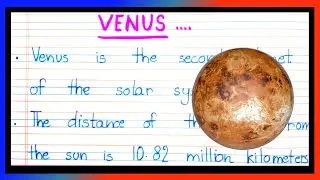 VENUS ....
• Venus is the
of the solar
• The distance of
the sun is 10.82 million kilometers